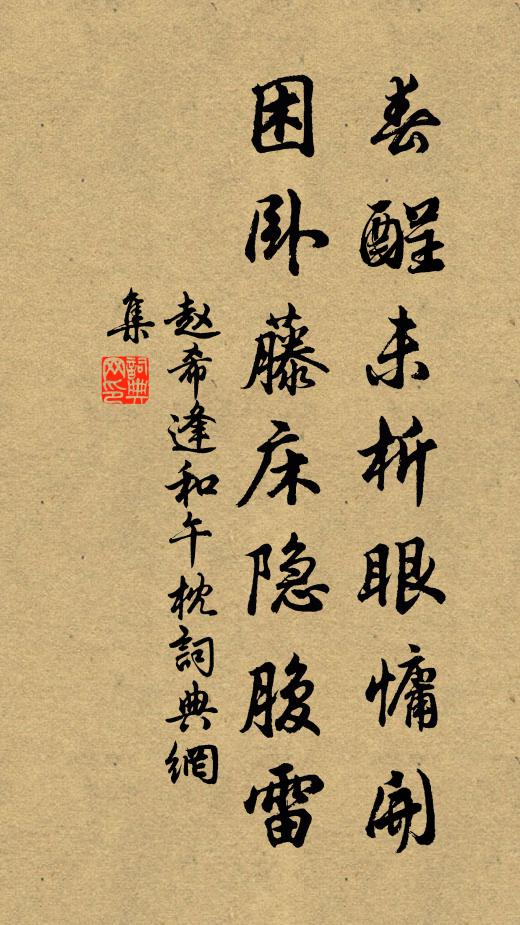 春醒未析眼慵開
困卧藤床隐腹雷
赵希逢和午枕詞典網
集
詞典
网印